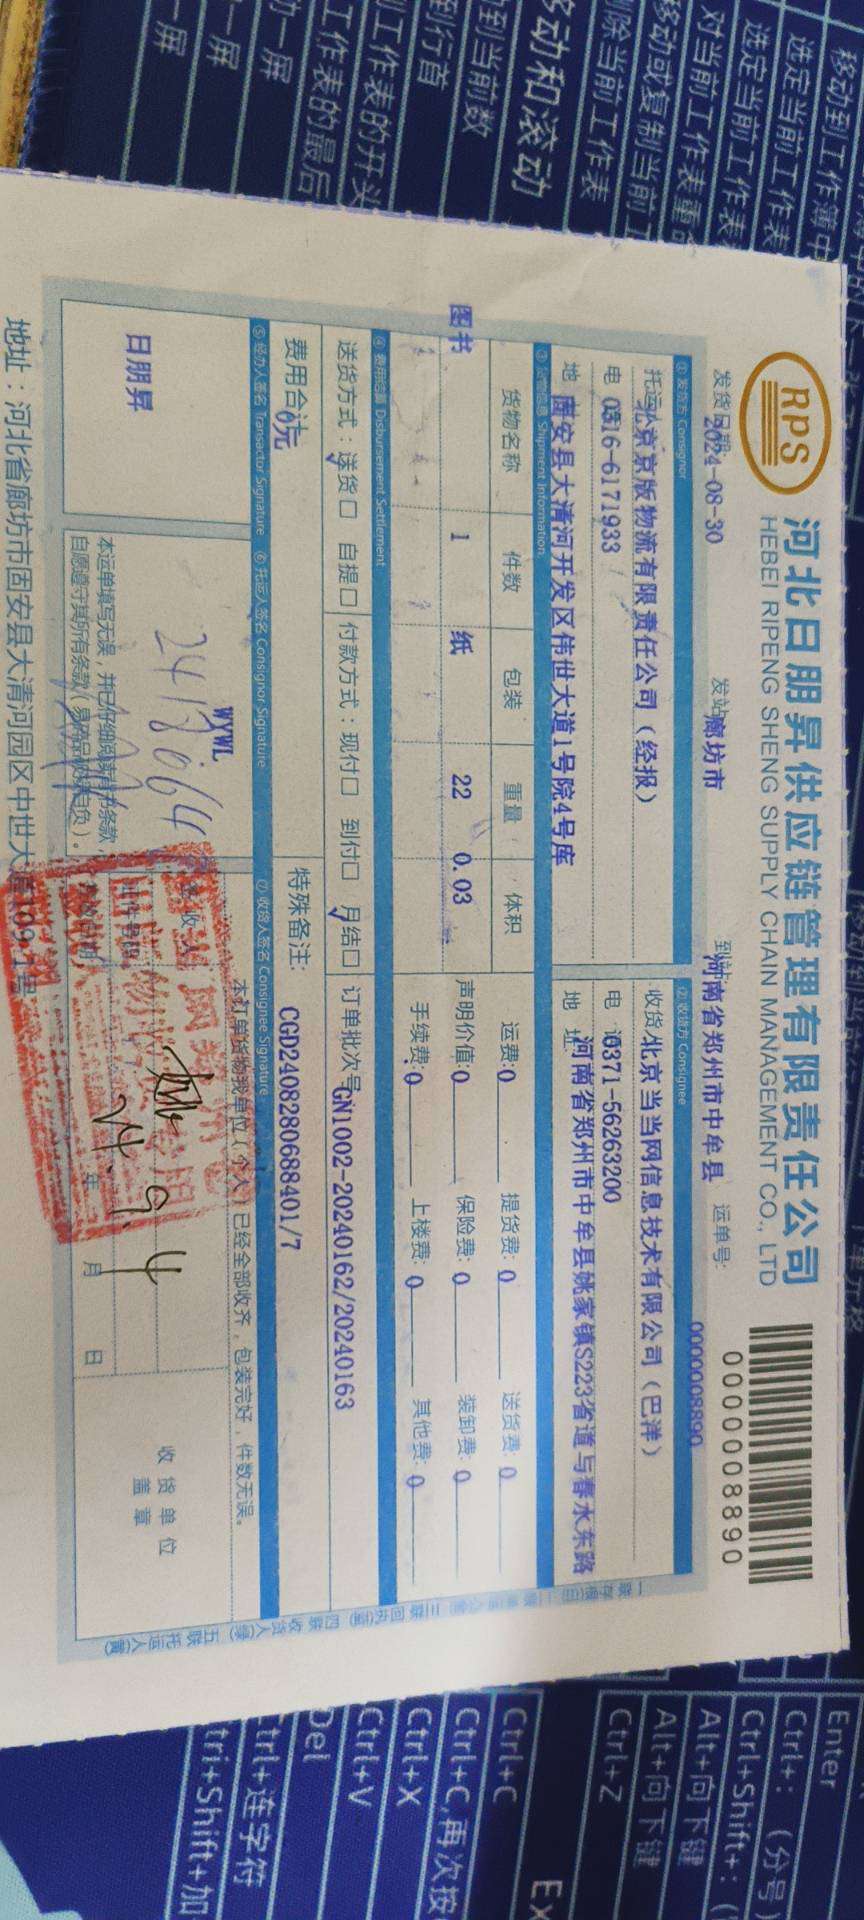 RPS
河北日朋昇供应链管理有限责任公司
HEBEI RIPENG SHENG SUPPLY CHAIN MANAGEMENT CO., LTD
0000008890
发货日期 2024-08-30 发站 廊坊市 到站 河南省郑州市中牟县 运单号: 0000008890
① 发货方 Consignor
② 收货方 Consignee
托运 北京京版物流有限责任公司（经报）
收货 北京当当网信息技术有限公司（巴洋）
电 0316-6171933
电 话 0371-56263200
地 固安县大清河开发区伟世大道1号院4号库
地 址 河南省郑州市中牟县姚家镇S223省道与春水东路
③ 货物信息 Shipment Information
货物名称 件数 包装 重量 体积
运费:0 提货费: 0 送货费: 0
图书 1 纸 22 0.03
声明价值:0 保险费: 0 装卸费: 0
手续费:0 上楼费: 0 其他费: 0
④ 费用结算 Disbursement Settlement
送货方式：送货☐ 自提☐ 付款方式：现付☐ 到付☐ 月结☐
订单批次号 GN1002-20240162/20240163
费用合计 0元
特殊备注: CGD2408280688401/7
⑤ 经办人签名 Transactor Signature ⑥ 托运人签名 Consignor Signature
⑦ 收货人签名 Consignee Signature
日朋昇
WYWL
本订单货物我单位（个人）已经全部收齐，包装完好，件数无误。
本运单填写无误，并已仔细阅读背书条款
自愿遵守其所有条款
24.9.4
年 月 日
收货单位
盖章
地址：河北省廊坊市固安县大清河园区中世大道109-1号
移动到工作簿中
选定当前工作表
选定当前工作表
对当前工作表重命
移动或复制当前工
删除当前工作表
移动和滚动
动到当前数
到行首
工作表的开头
工作表的最后
一屏
一屏
一屏
Enter
Ctrl+：（分号）
Ctrl+Shift+：
Alt+向下键
Alt+向下键
Ctrl+Z
Ex
Ctrl+C
Ctrl+C,再次按
Ctrl+X
Ctrl+V
Del
trl+连字符
tri+Shift+加